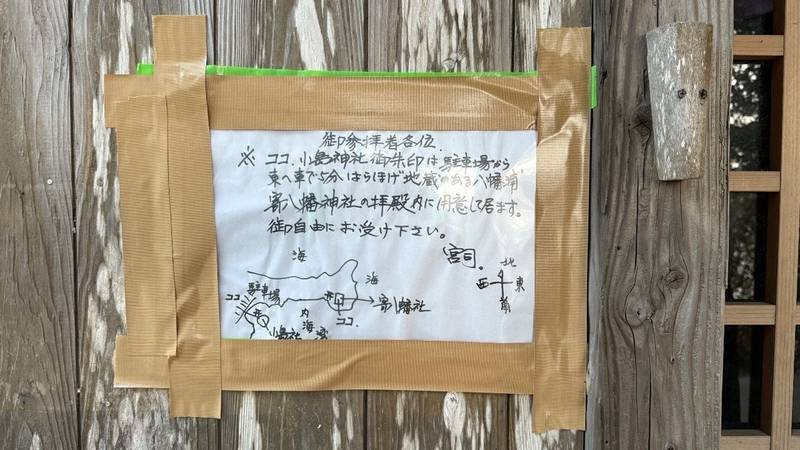 御参拝者各位.
※ ココ.小島神社御朱印は駐車場から
東へ車で5分、はらほげ地蔵のある八幡浦
寄八幡神社の拝殿内に用意して居ます。
御自由にお受け下さい。
宮司.
海
海
北
西
東
南
駐車場
ココ
小島神社
内
海
ココ.
寄八幡社